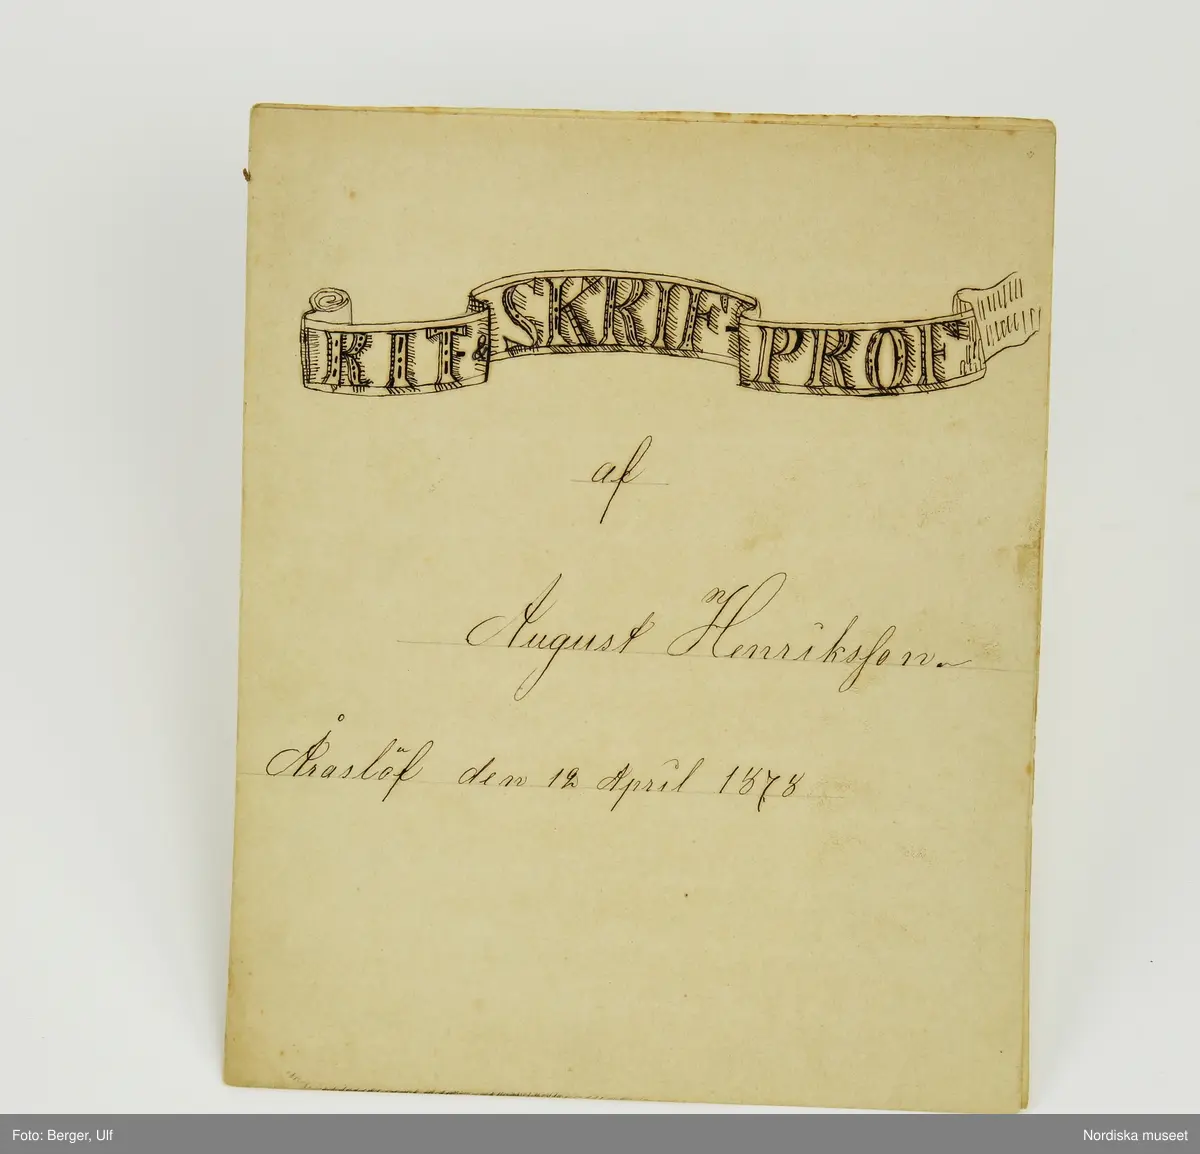 RIT & SKRIF- PROF
af
August Henriksson.
Åraslöf den 12 April 1878
Foto: Berger, Ulf
Nordiska museet